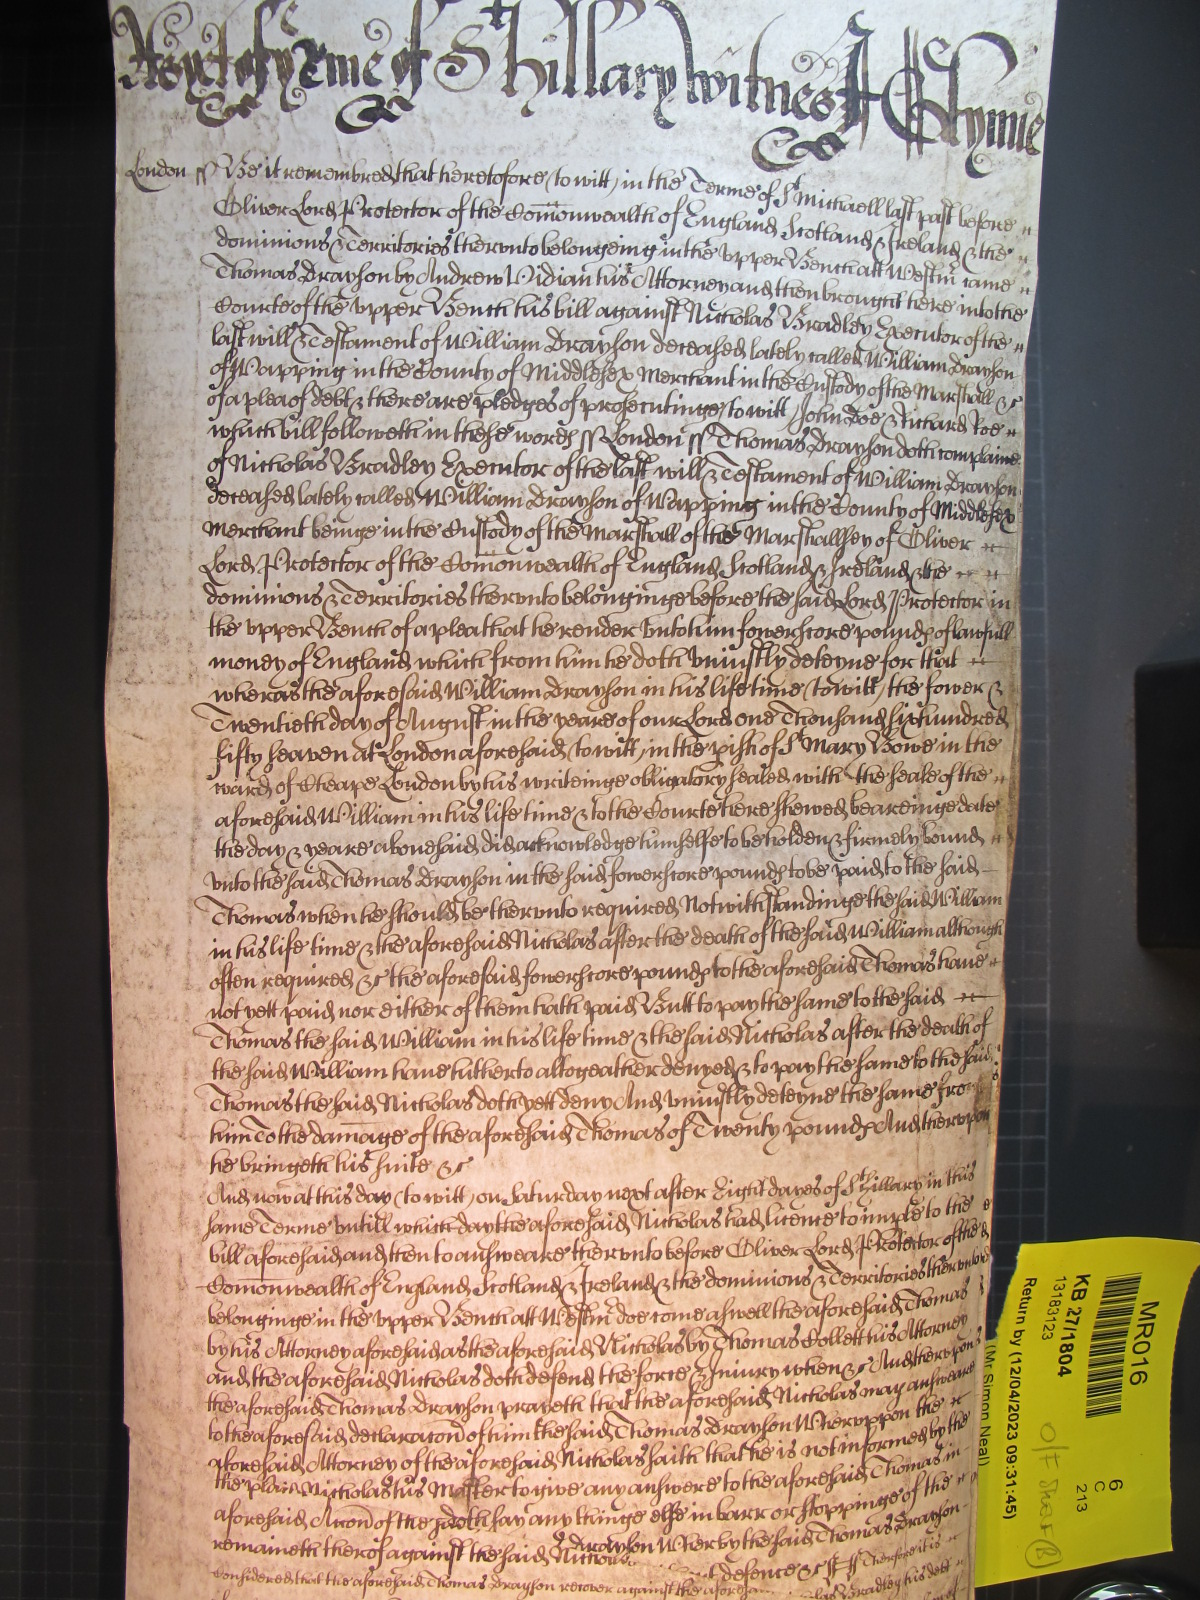 As yet of ye Terme of St Hillary Witnes J Glynne
London ss Be it remembred that heretofore (to witt) in the Terme of St Michaell last past before
Oliver Lord Protector of the Comonwealth of England Scotland & Ireland & the
dominions & Territories therunto belongeing in the upper Bench att Westmr came
Thomas Drayson by Andrew Vidian his Attorney and then brought here into the
Courte of the upper Bench his bill against Nicholas Bradley Executor of the
last will & Testament of William Drayson deceased lately called William Drayson
of Wapping in the County of Middlesex Merchant in the Custody of the Marshall &c
of a plea of debt & there are pledges of prosecutinge (to witt) John Doe & Richard Roe
which bill followeth in these words ss London ss Thomas Drayson doth complaine
of Nicholas Bradley Executor of the last will & Testament of William Drayson
deceased lately called William Drayson of Wapping in the County of Middlesex
Merchant beinge in the Custody of the Marshall of the Marshallsey of Oliver
Lord Protector of the Comonwealth of England Scotland & Ireland & the
dominions & Territories therunto belonginge before the said Lord Protector in
the upper Bench of a plea that he render unto him fowerscore pounds of lawfull
money of England which from him he doth uniustly deteyne for that
wheras the aforesaid William Drayson in his life time (to witt) the fower &
Twentieth day of August in the yeare of our Lord one Thousand six hundred
fifty seaven at London aforesaid (to witt) in the pish of St Mary Bowe in the
ward of Cheape London by his writeinge obligatory sealed with the seale of the
aforesaid William in his life time & to the Courte here shewed beareinge date
the day & yeare abovesaid did acknowledge himselfe to be holden & firmely bound
unto the said Thomas Drayson in the said fowerscore pounds to be paid to the said
Thomas when he should be therunto required Notwithstandinge the said William
in his life time & the aforesaid Nicholas after the death of the said William although
often required &c the aforesaid fowerscore pounds to the aforesaid Thomas have
not yett paid nor either of them hath paid Butt to pay the same to the said
Thomas the said William in his life time & the said Nicholas after the death of
the said William have hitherto altogeather denyed & to pay the same to the said
Thomas the said Nicholas doth yett deny And uniustly deteyne the same fro
him To the damage of the aforesaid Thomas of Twenty pounds And therupon
he bringeth his suite &c
And now at this day (to witt) on Saturday next after Eight dayes of St Hillary in this
same Terme untill which day the aforesaid Nicholas had licence to imple to the
bill aforesaid and then to answeare therunto before Oliver Lord Protector of the
Comonwealth of England Scotland & Ireland & the dominions & Territories therunto
belonginge in the upper Bench att Westmr doe come aswell the aforesaid Thomas
by his Attorney aforesaid as the aforesaid Nicholas by Thomas Collett his Attorney
and the aforesaid Nicholas doth defend the force & Iniury when &c And therupon
the aforesaid Thomas Drayson prayeth that the aforesaid Nicholas may answeare
to the aforesaid declaracon of him the said Thomas Drayson Wheruppon the
aforesaid Attorney of the aforesaid Nicholas saith that he is not informed by the
Nicholas his Master to give any answere to the aforesaid Thomas in
aforesaid of the doth say any thinge else in barr or stoppinge of the
remaineth therof against the said Nicholas Drayson Wherby the said Thomas Drayson
defence &c Therfore it is
Considered that the aforesaid Thomas Drayson recover against the Bradley his debt
MR016
KB 27/1804
13183123
Return by (12/04/2023 09:31:45)
(Mr Simon Neal)
6
C
213
O/F Shelf (B)